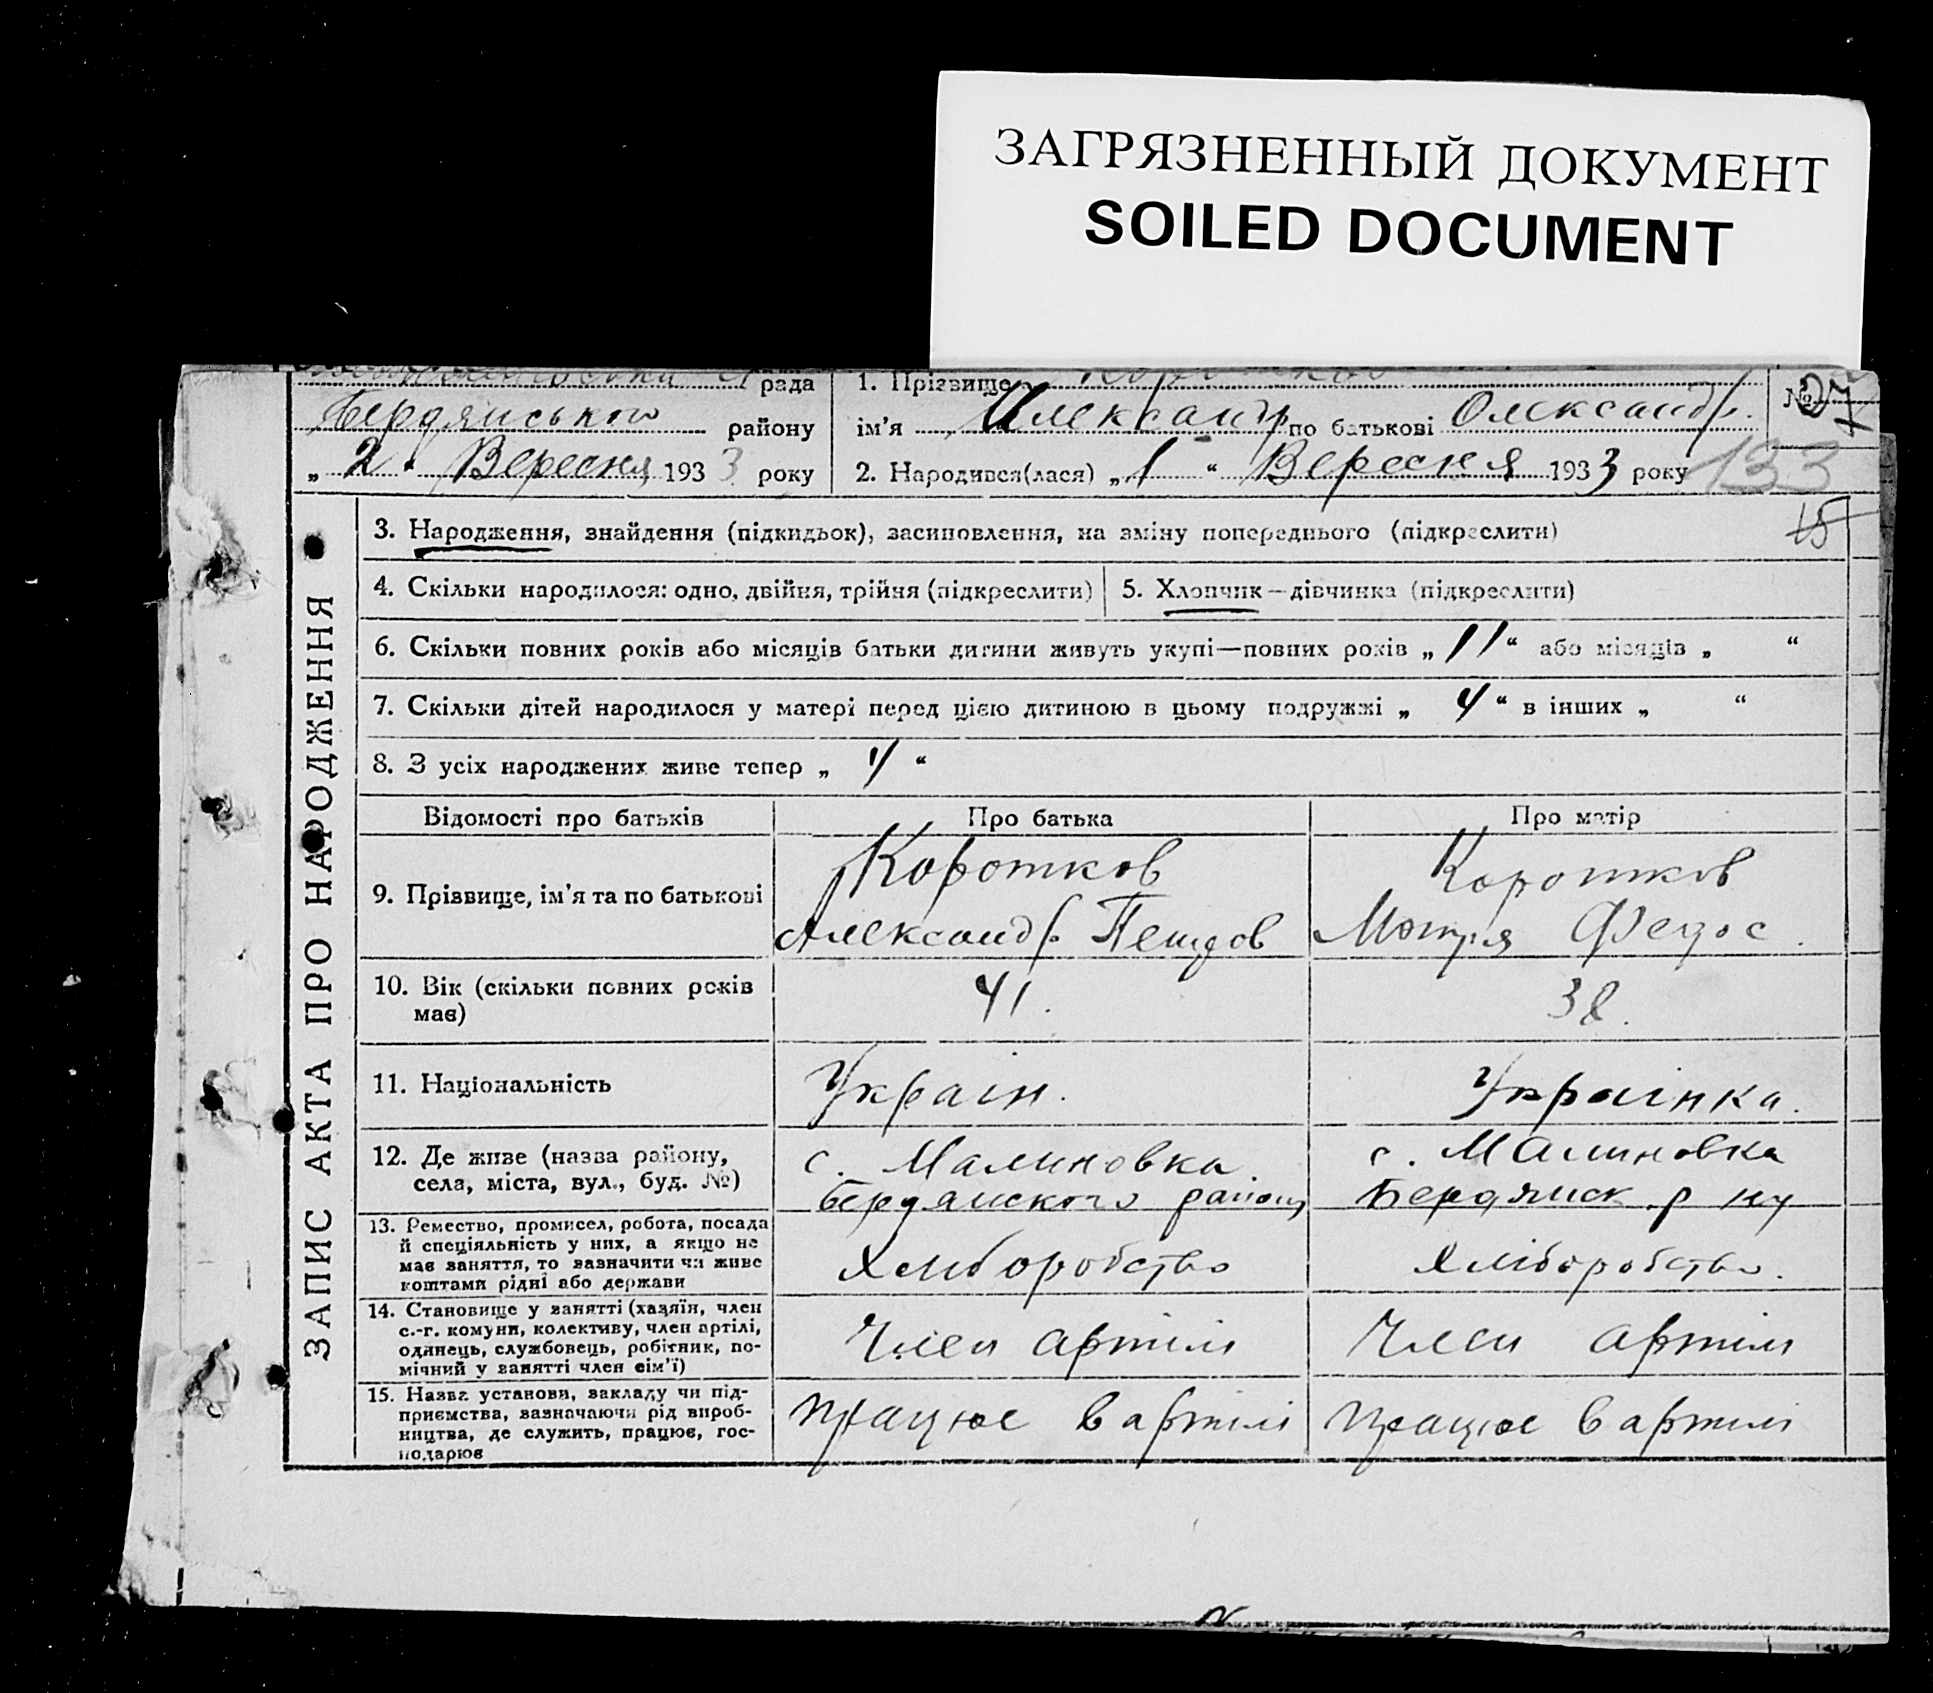 ЗАГРЯЗНЕННЫЙ ДОКУМЕНТ
SOILED DOCUMENT
рада
Бердянського району
„ 2 " Вересня 1933 року
1. Прізвище
ім'я Александр по батькові Олександр.
2. Народився(лася) „ 1 " Вересня 1933 року
№ 27
133
15
ЗАПИС АКТА ПРО НАРОДЖЕННЯ
3. Народження, знайдення (підкидьок), засиновлення, на зміну попереднього (підкреслити)
4. Скільки народилося: одно, двійня, трійня (підкреслити)
5. Хлопчик—дівчинка (підкреслити)
6. Скільки повних років або місяців батьки дитини живуть укупі—повних років „ 11 " або місяців „ "
7. Скільки дітей народилося у матері перед цією дитиною в цьому подружжі „ 4 " в інших „ "
8. З усіх народжених живе тепер „ 4 "
Відомості про батьків
Про батька
Про матір
9. Прізвище, ім'я та по батькові
Коротков
Александр.
Коротков
Мотря Федос.
10. Вік (скільки повних років
має)
41.
38.
11. Національність
Україн.
Українка.
12. Де живе (назва району,
села, міста, вул., буд. №)
с. Малиновка
Бердянского району
с. Малиновка
Бердянск р ну
13. Ремество, промисел, робота, посада
й спеціяльність у них, а якщо не
має заняття, то зазначити чи живе
коштами рідні або держави
Хлиборобство
Хліборобство.
14. Становище у занятті (хазяїн, член
с.-г. комуни, колективу, член артілі,
одинець, службовець, робітник, по-
мічний у занятті член сім'ї)
Член артили
Член артили
15. Назва установи, закладу чи під-
приємства, зазначаючи рід вироб-
ництва, де служить, працює, гос-
подарює
працює в артілі
працює в артілі